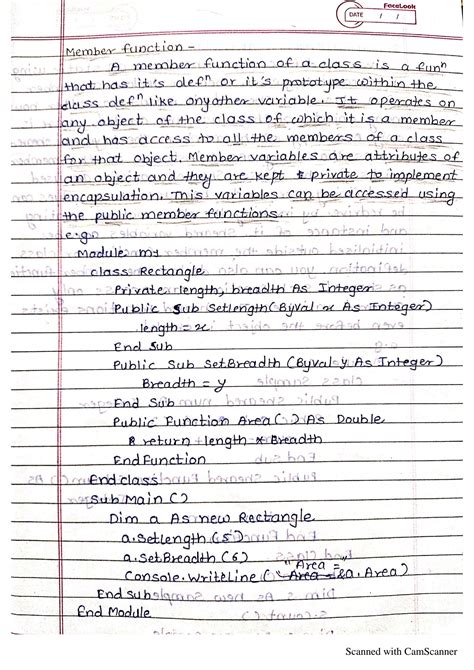 FaceLook
DATE / /
Member function -
A member function of a class is a funⁿ
that has it's defⁿ or it's prototype within the
class defⁿ like anyother variable. It operates on
any object of the class of which it is a member
and has access to all the members of a class
for that object. Member variables are attributes of
an object and they are kept private to implement
encapsulation. This variables can be accessed using
the public member functions.
e.g.
Module m1
class Rectangle
Private length, breadth As Integer
Public Sub Setlength (ByVal x As Integer)
length = x
End Sub
Public Sub SetBreadth (Byval y As Integer)
Breadth = y
End Sub
Public Function Area ( ) As Double
return length * Breadth
End Function
End class
Sub Main ( )
Dim a As new Rectangle
a.Setlength (5)
a.SetBreadth (6)
Console.WriteLine ("Area =" & a.Area)
End sub
End Module
Scanned with CamScanner